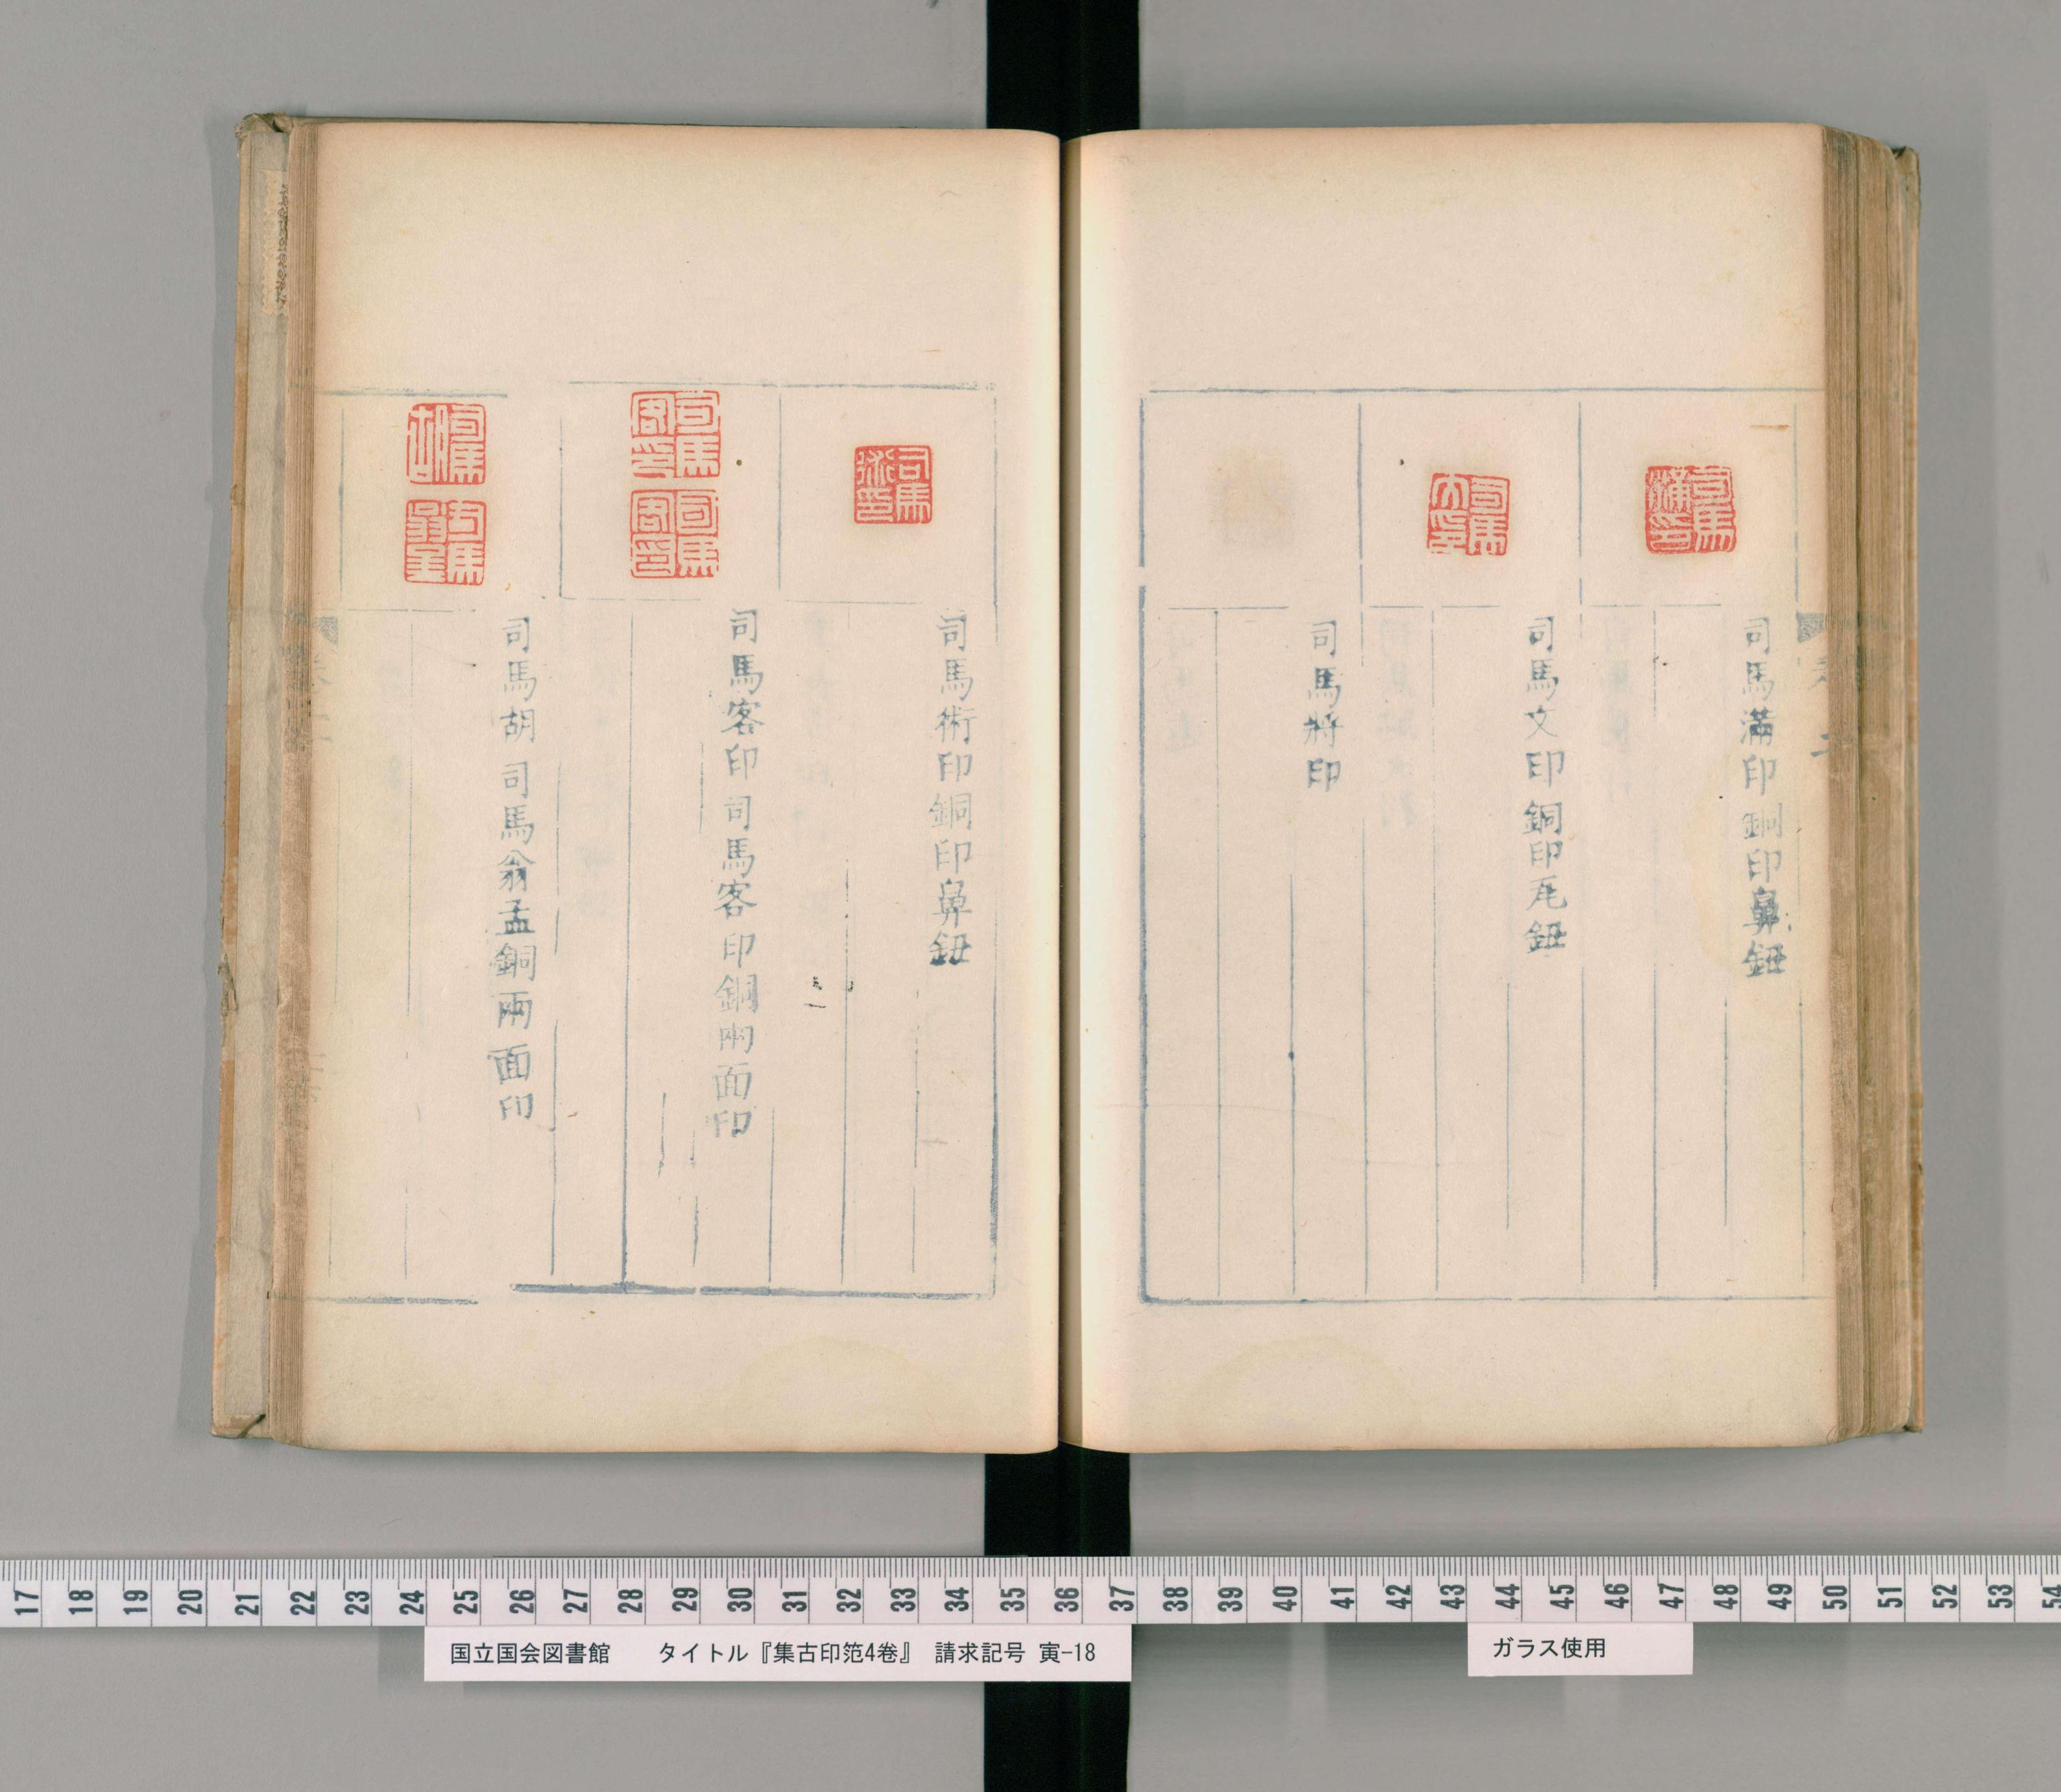 司馬滿印銅印鼻鈕
司馬文印銅印瓦鈕
司馬將印
司馬術印銅印鼻鈕
司馬客印 司馬客印銅兩面印
司馬胡 司馬翁孟銅兩面印
17 18 19 20 21 22 23 24 25 26 27 28 29 30 31 32 33 34 35 36 37 38 39 40 41 42 43 44 45 46 47 48 49 50 51 52 53 54
国立国会図書館 タイトル『集古印笵4巻』 請求記号 寅-18
ガラス使用